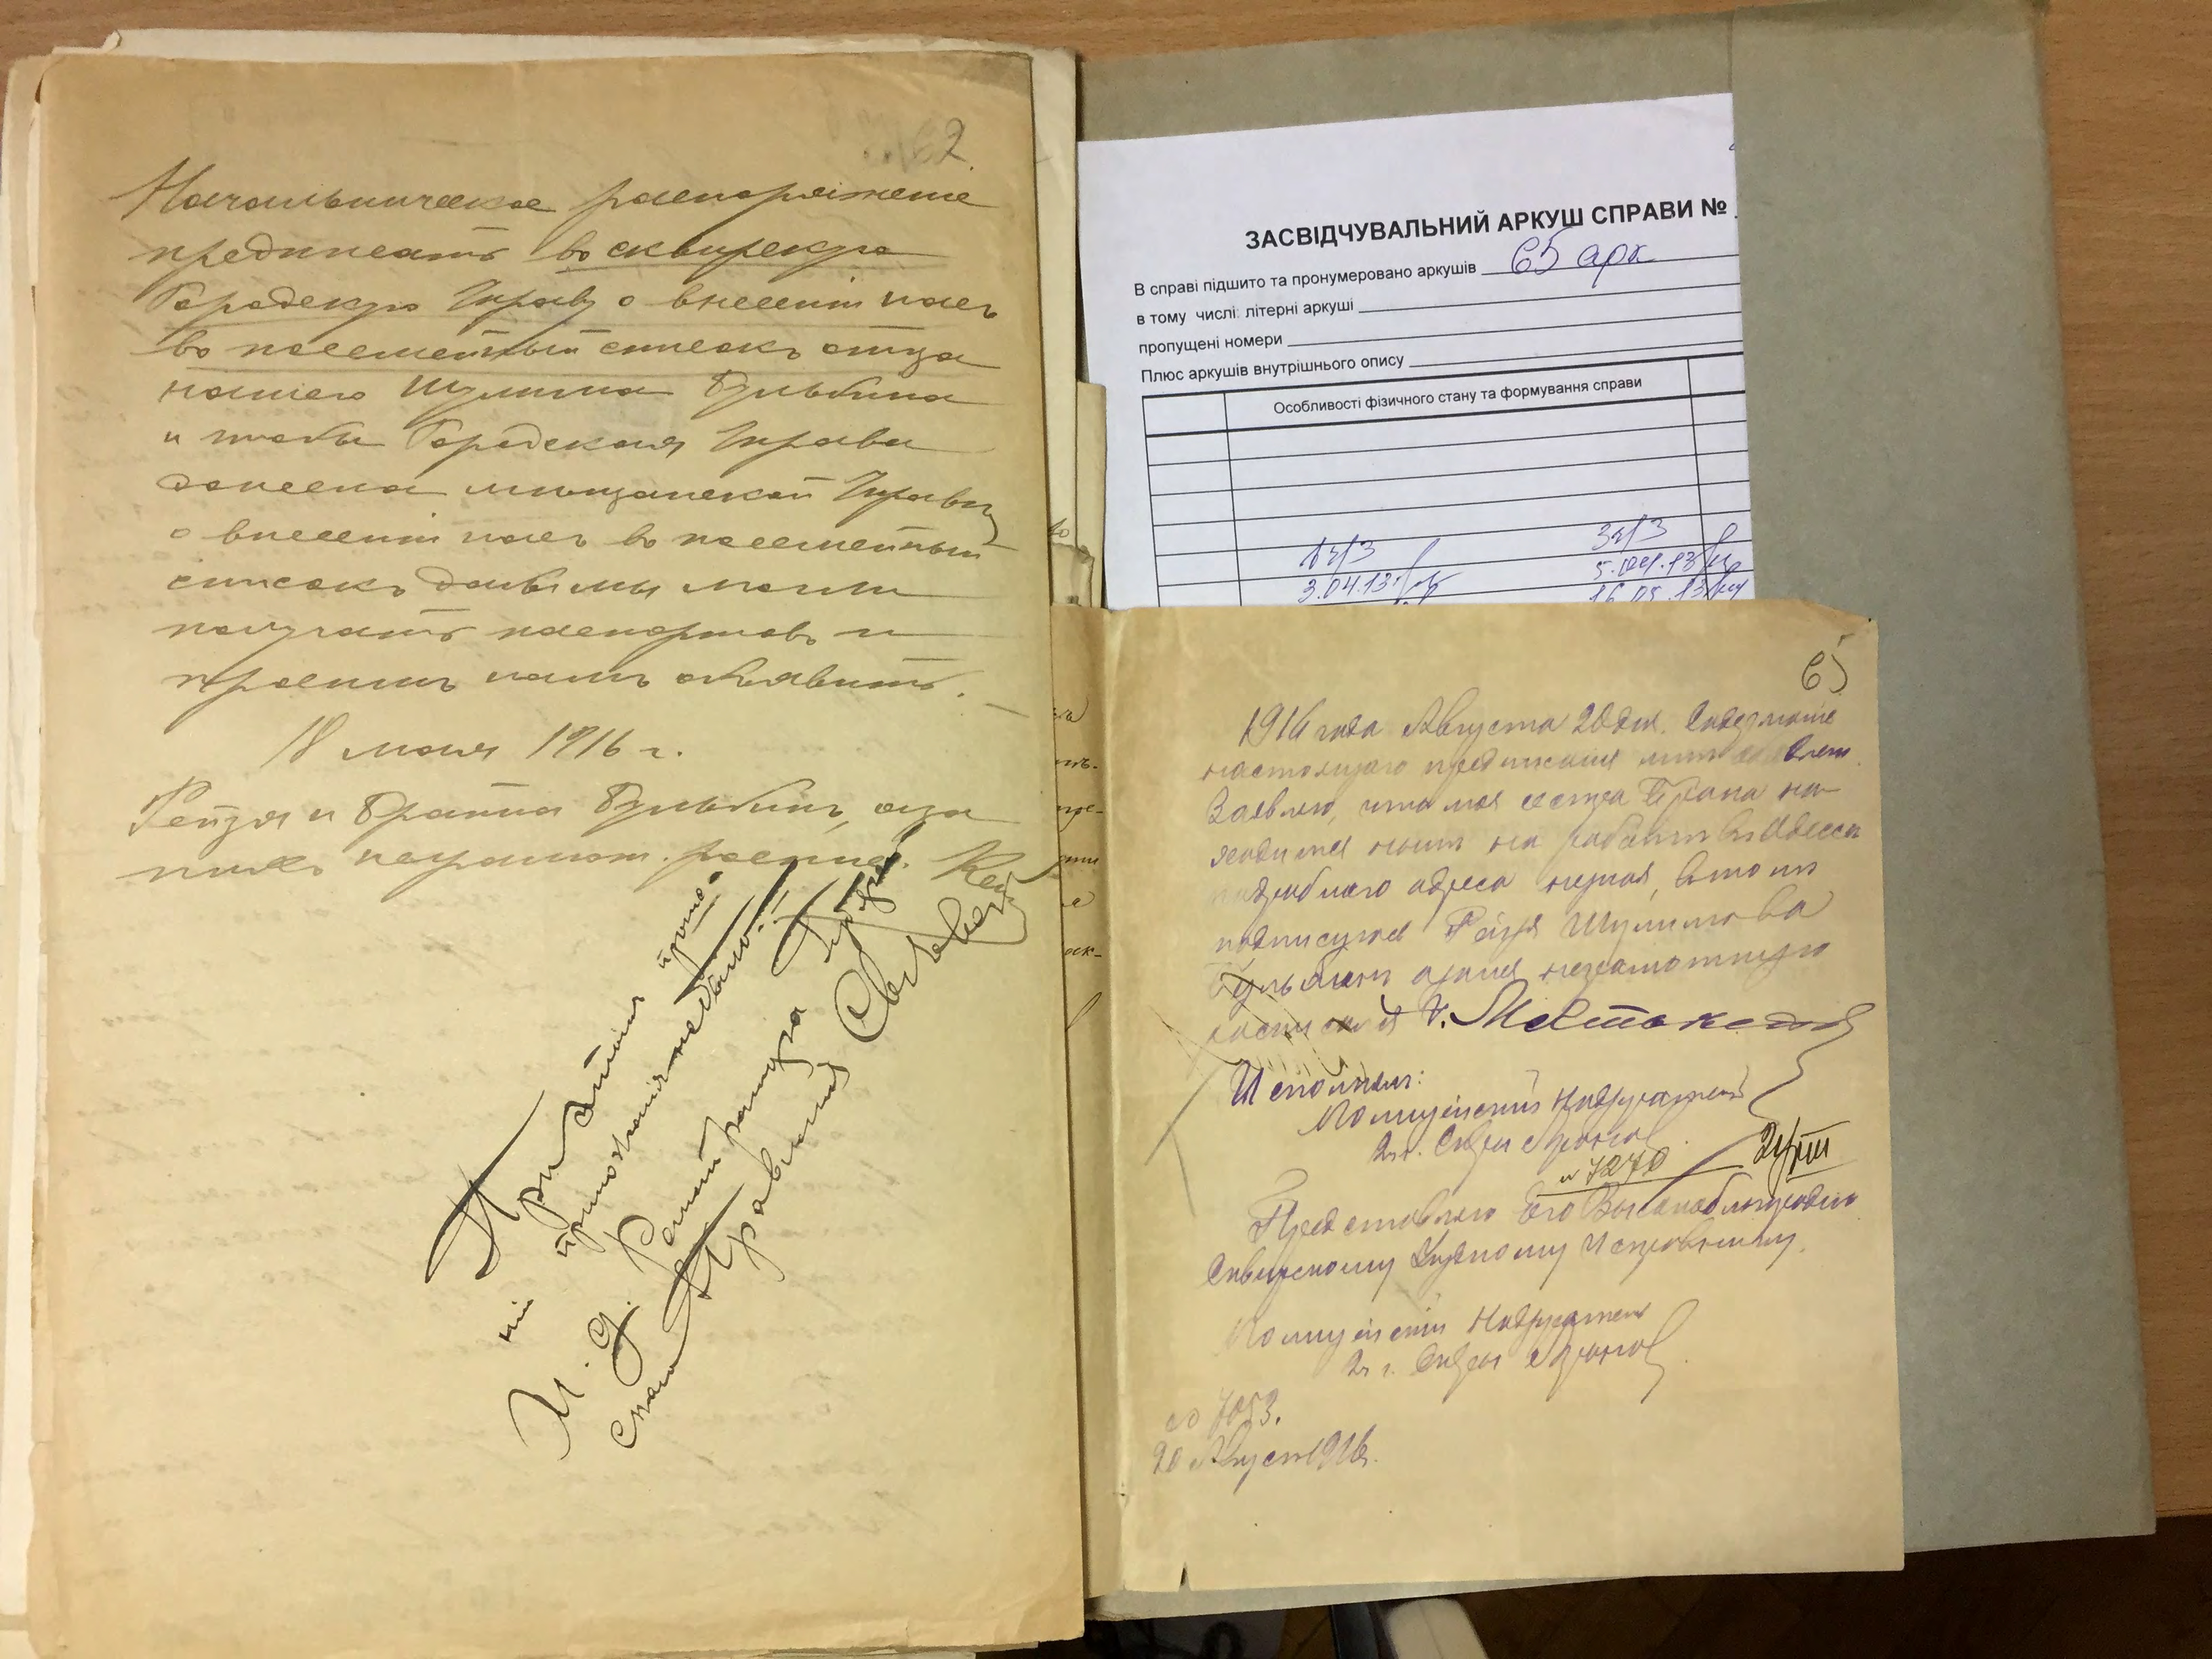 62.
Начальническое распоряжение
предписать во сквирскую
Городскую Управу о внесеніи насъ
во посемейный списокъ отца
нашего Шулима Бульбина
и чтобы Городская Управа
донесла мещанской Управѣ
о внесеніи насъ во посемейный
списокъ дабы мы могли
получать паспортовъ и
просимъ намъ объявить.
18 мая 1916 г.
Рейзя и Брайна Бульбинъ, а за
нихъ неграмот. распис.
При этомъ прото-
ніи приложенія не было!
И. д.
ЗАСВІДЧУВАЛЬНИЙ АРКУШ СПРАВИ №
В справі підшито та пронумеровано аркушів 65 арк
в тому числі: літерні аркуші
пропущені номери
Плюс аркушів внутрішнього опису
Особливості фізичного стану та формування справи
3.04.13
5.04.13
16.05.13
65
1916 года Августа 20 дня. Содержаніе
настоящаго предписанія мнѣ объявлено.
Заявляю, что моя сестра Брана на-
ходится нынѣ на работѣ въ Одессѣ
подробнаго адреса незнаю, въ томъ
подписуюсь Рейзя Шулимова
Бульбинъ а за нея неграмотную
росписался
Исполнилъ:
Полицейскій Надзиратель
2 г. Сквиры
№ 7270
21/VIII
Представляю Его Высокоблагородію
Сквирскому Уѣздному Исправнику.
Полицейскій Надзиратель
2 г. Сквиры
№ 7053.
20 Августа 1916 г.